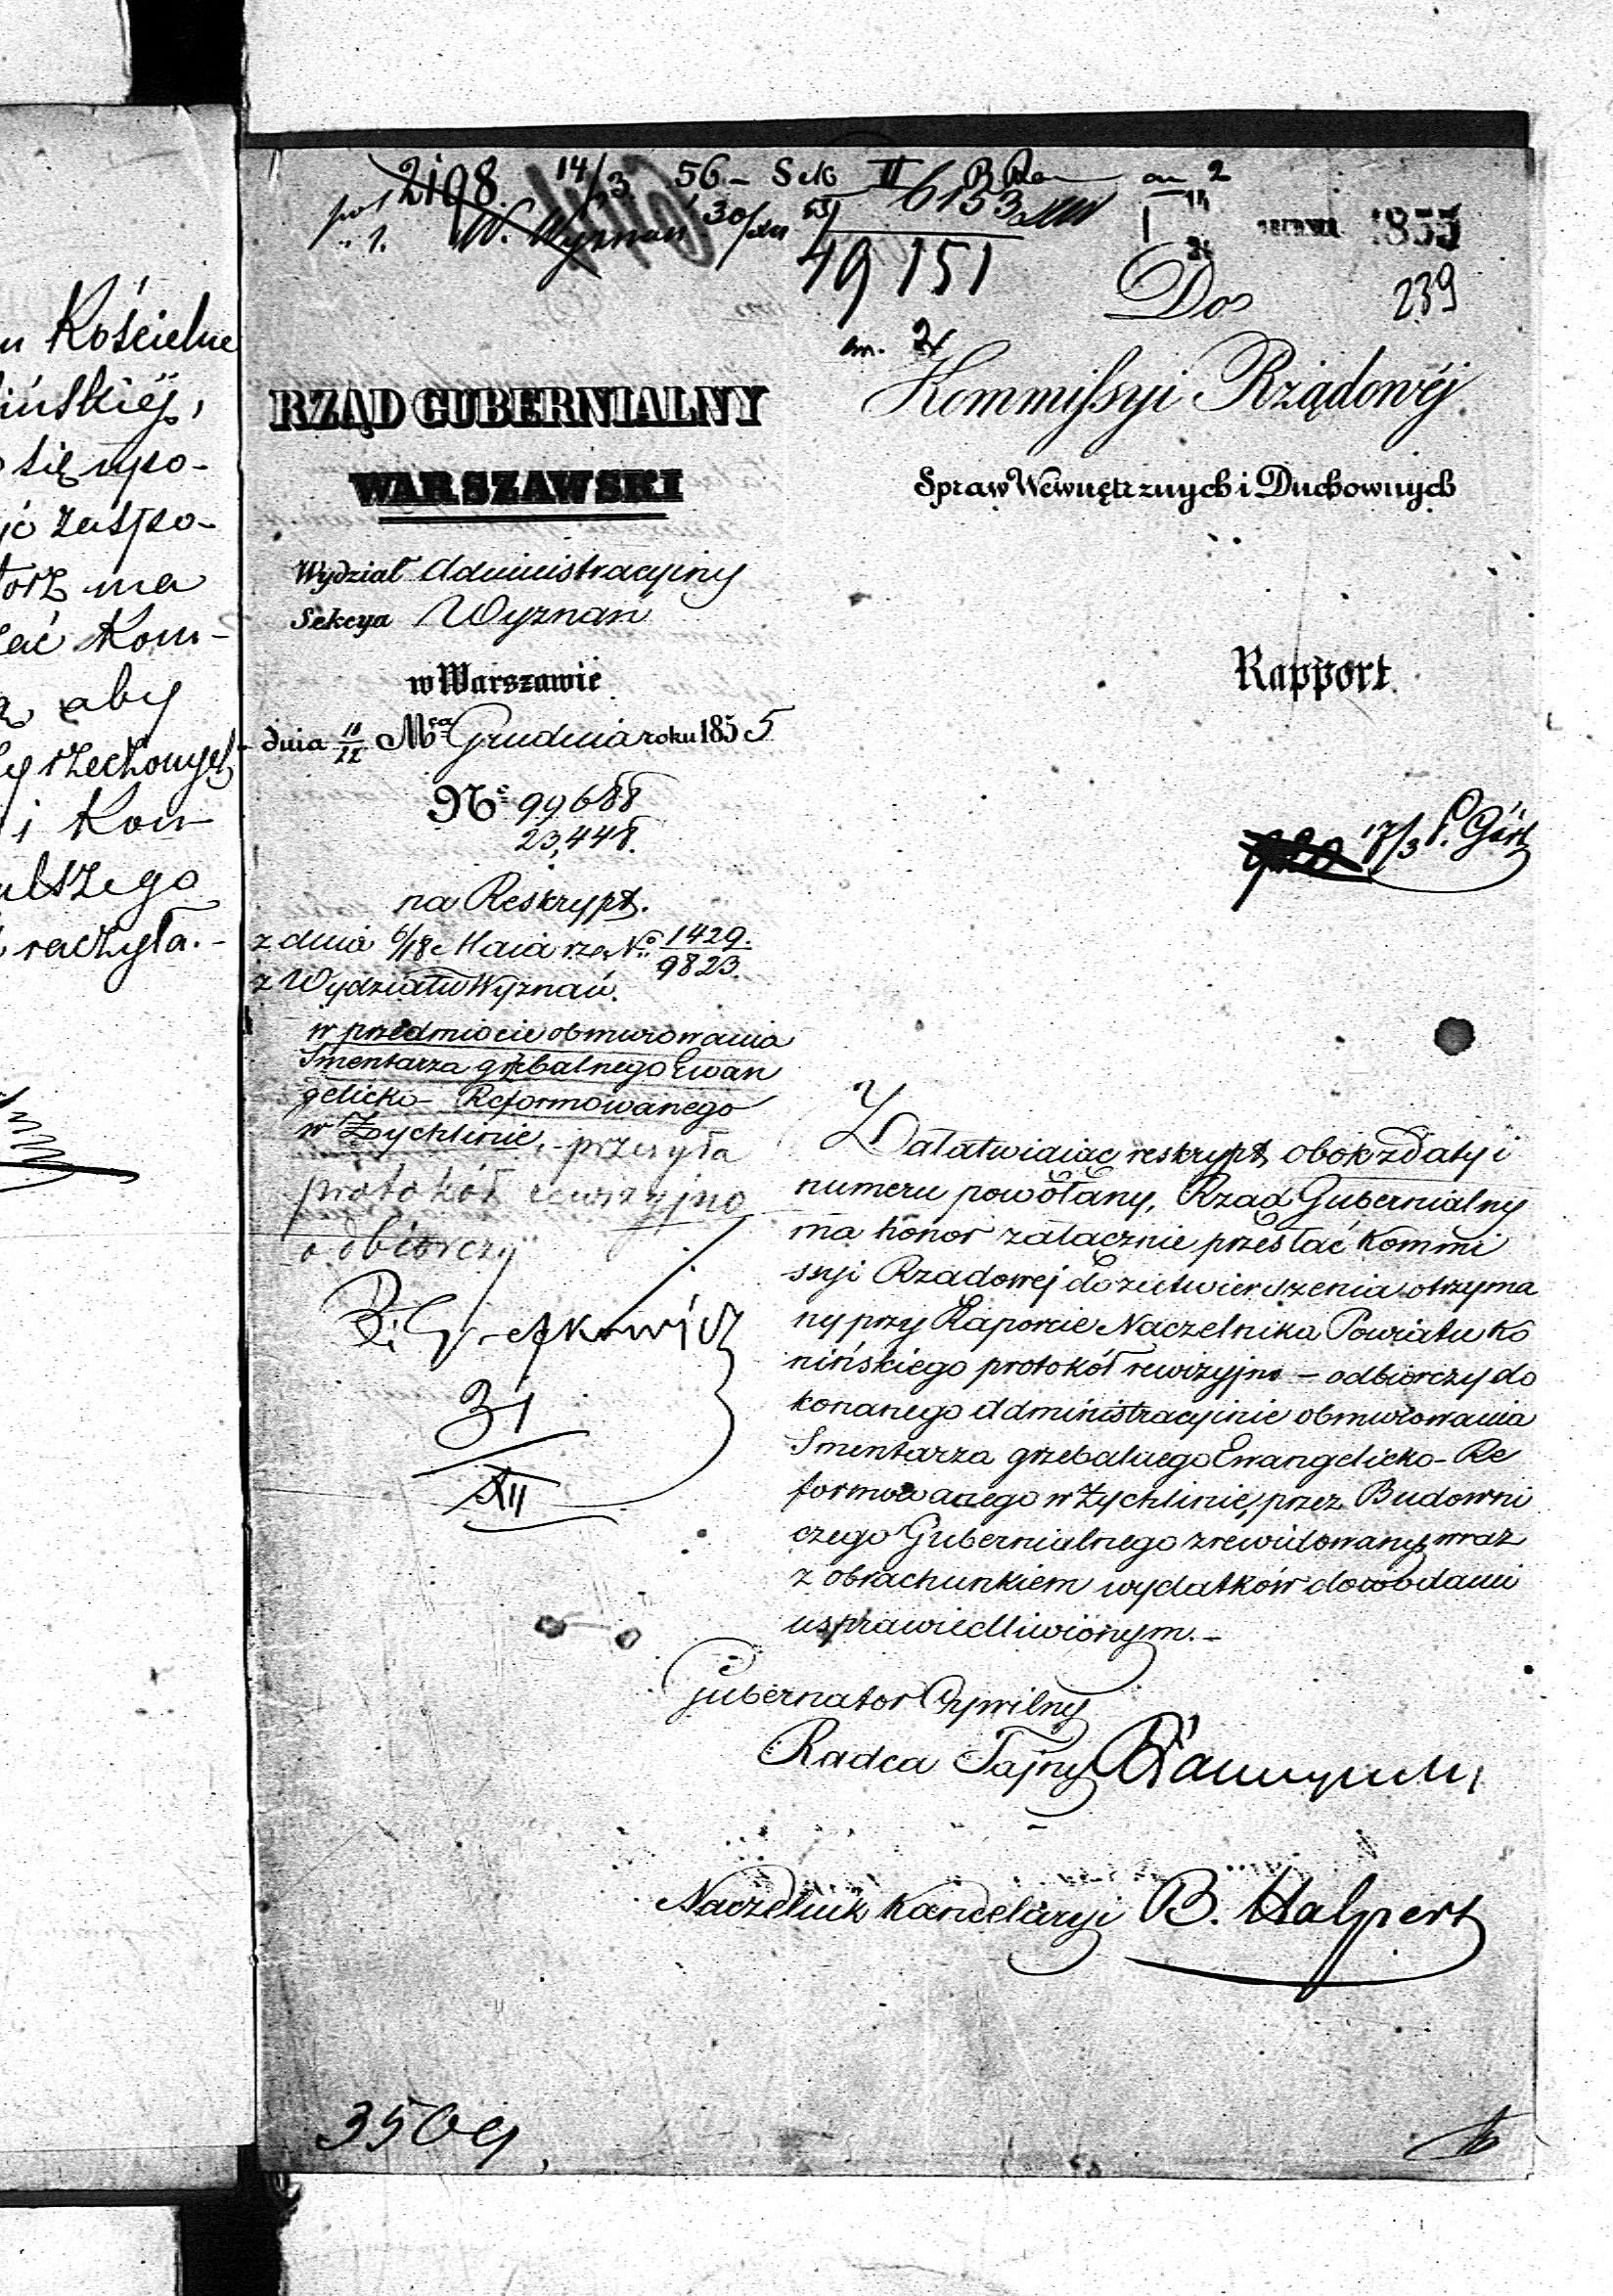 u Kościelne
ińskiéj,
się wpo-
ić zaśpo-
torz ma
łać Kom-
aby
rzechonych
i Kom
szego
raczyła.-
2198. 14/3 56 - Sek II 6153
W. Wyznań 30/ 49151
1855
Do 239
Kommissyi Rządowéj
Spraw Wewnętrznych i Duchownych
RZĄD GUBERNIALNY
WARSZAWSKI
Wydział Administracyjny
Sekcya Wyznań
w Warszawie
dnia 10/22 Mca Grudnia roku 1855
No 99688
23,448.
na Reskrypt.
z dnia 6/18 Maia rz No 1429.
9823.
z Wydziału Wyznań.
w przedmiocie obmurowania
Smentarza grzebalnego Ewan
gelicko- Reformowanego
w Żychlinie, - przesyła
protokół rewizyjno
odbiorczy
31
XII
Rapport
17/3
Załatwiaiąc reskrypt obok z daty i
numeru powołany, Rząd Gubernialny
ma honor załącznie przesłać Kommi
ssyi Rządowej do zatwierdzenia otrzyma
ny przy Raporcie Naczelnika Powiatu Ko
nińskiego protokół rewizyjno - odbiorczy do
konanego Administracyinie obmurowania
Smentarza grzebalnego Ewangelicko- Re
formowanego w Żychlinie, przez Budowni
czego Gubernialnego zrewidowany, wraz
z obrachunkiem wydatków dowodami
usprawiedliwionym. -
Gubernator Cywilny
Radca Tajny
Naczelnik Kancelaryi B. Halpert